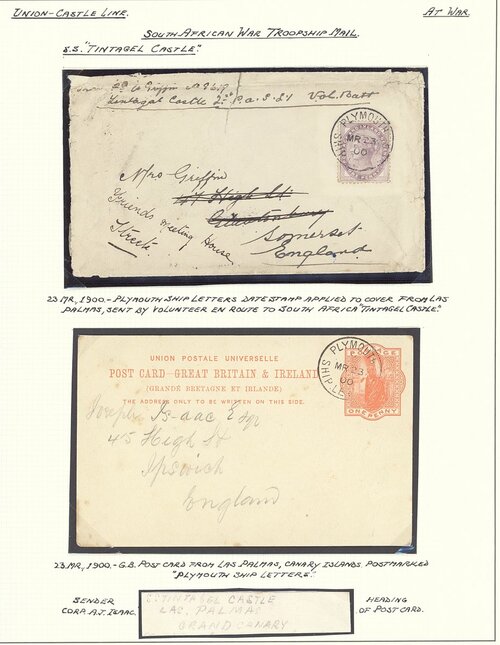 UNION-CASTLE LINE.
AT WAR.
SOUTH AFRICAN WAR TROOPSHIP MAIL.
S.S. "TINTAGEL CASTLE".
Tintagel Castle
Vol. Batt
PLYMOUTH
MR 23
00
SHIP
Mrs Griffin
47 High St
Glastonbury
Somerset
England
Friends Meeting House
Street
23 MR, 1900.- PLYMOUTH SHIP LETTERS DATESTAMP APPLIED TO COVER FROM LAS
PALMAS, SENT BY VOLUNTEER EN ROUTE TO SOUTH AFRICA "TINTAGEL CASTLE".
UNION POSTALE UNIVERSELLE
POST CARD—GREAT BRITAIN & IRELAND
(GRANDE BRETAGNE ET IRLANDE)
THE ADDRESS ONLY TO BE WRITTEN ON THIS SIDE.
PLYMOUTH
MR 23
00
SHIP LE
POSTAGE
ONE PENNY
Joseph Isaac Esqr
45 High St
Ipswich
England
23 MR, 1900.- G.B. POST CARD FROM LAS PALMAS, CANARY ISLANDS. POSTMARKED
"PLYMOUTH SHIP LETTERS".
SENDER
CORP. A.J. ISAAC.
SS TINTAGEL CASTLE
LAS. PALMAS
GRAND CANARY
HEADING
OF POST CARD.